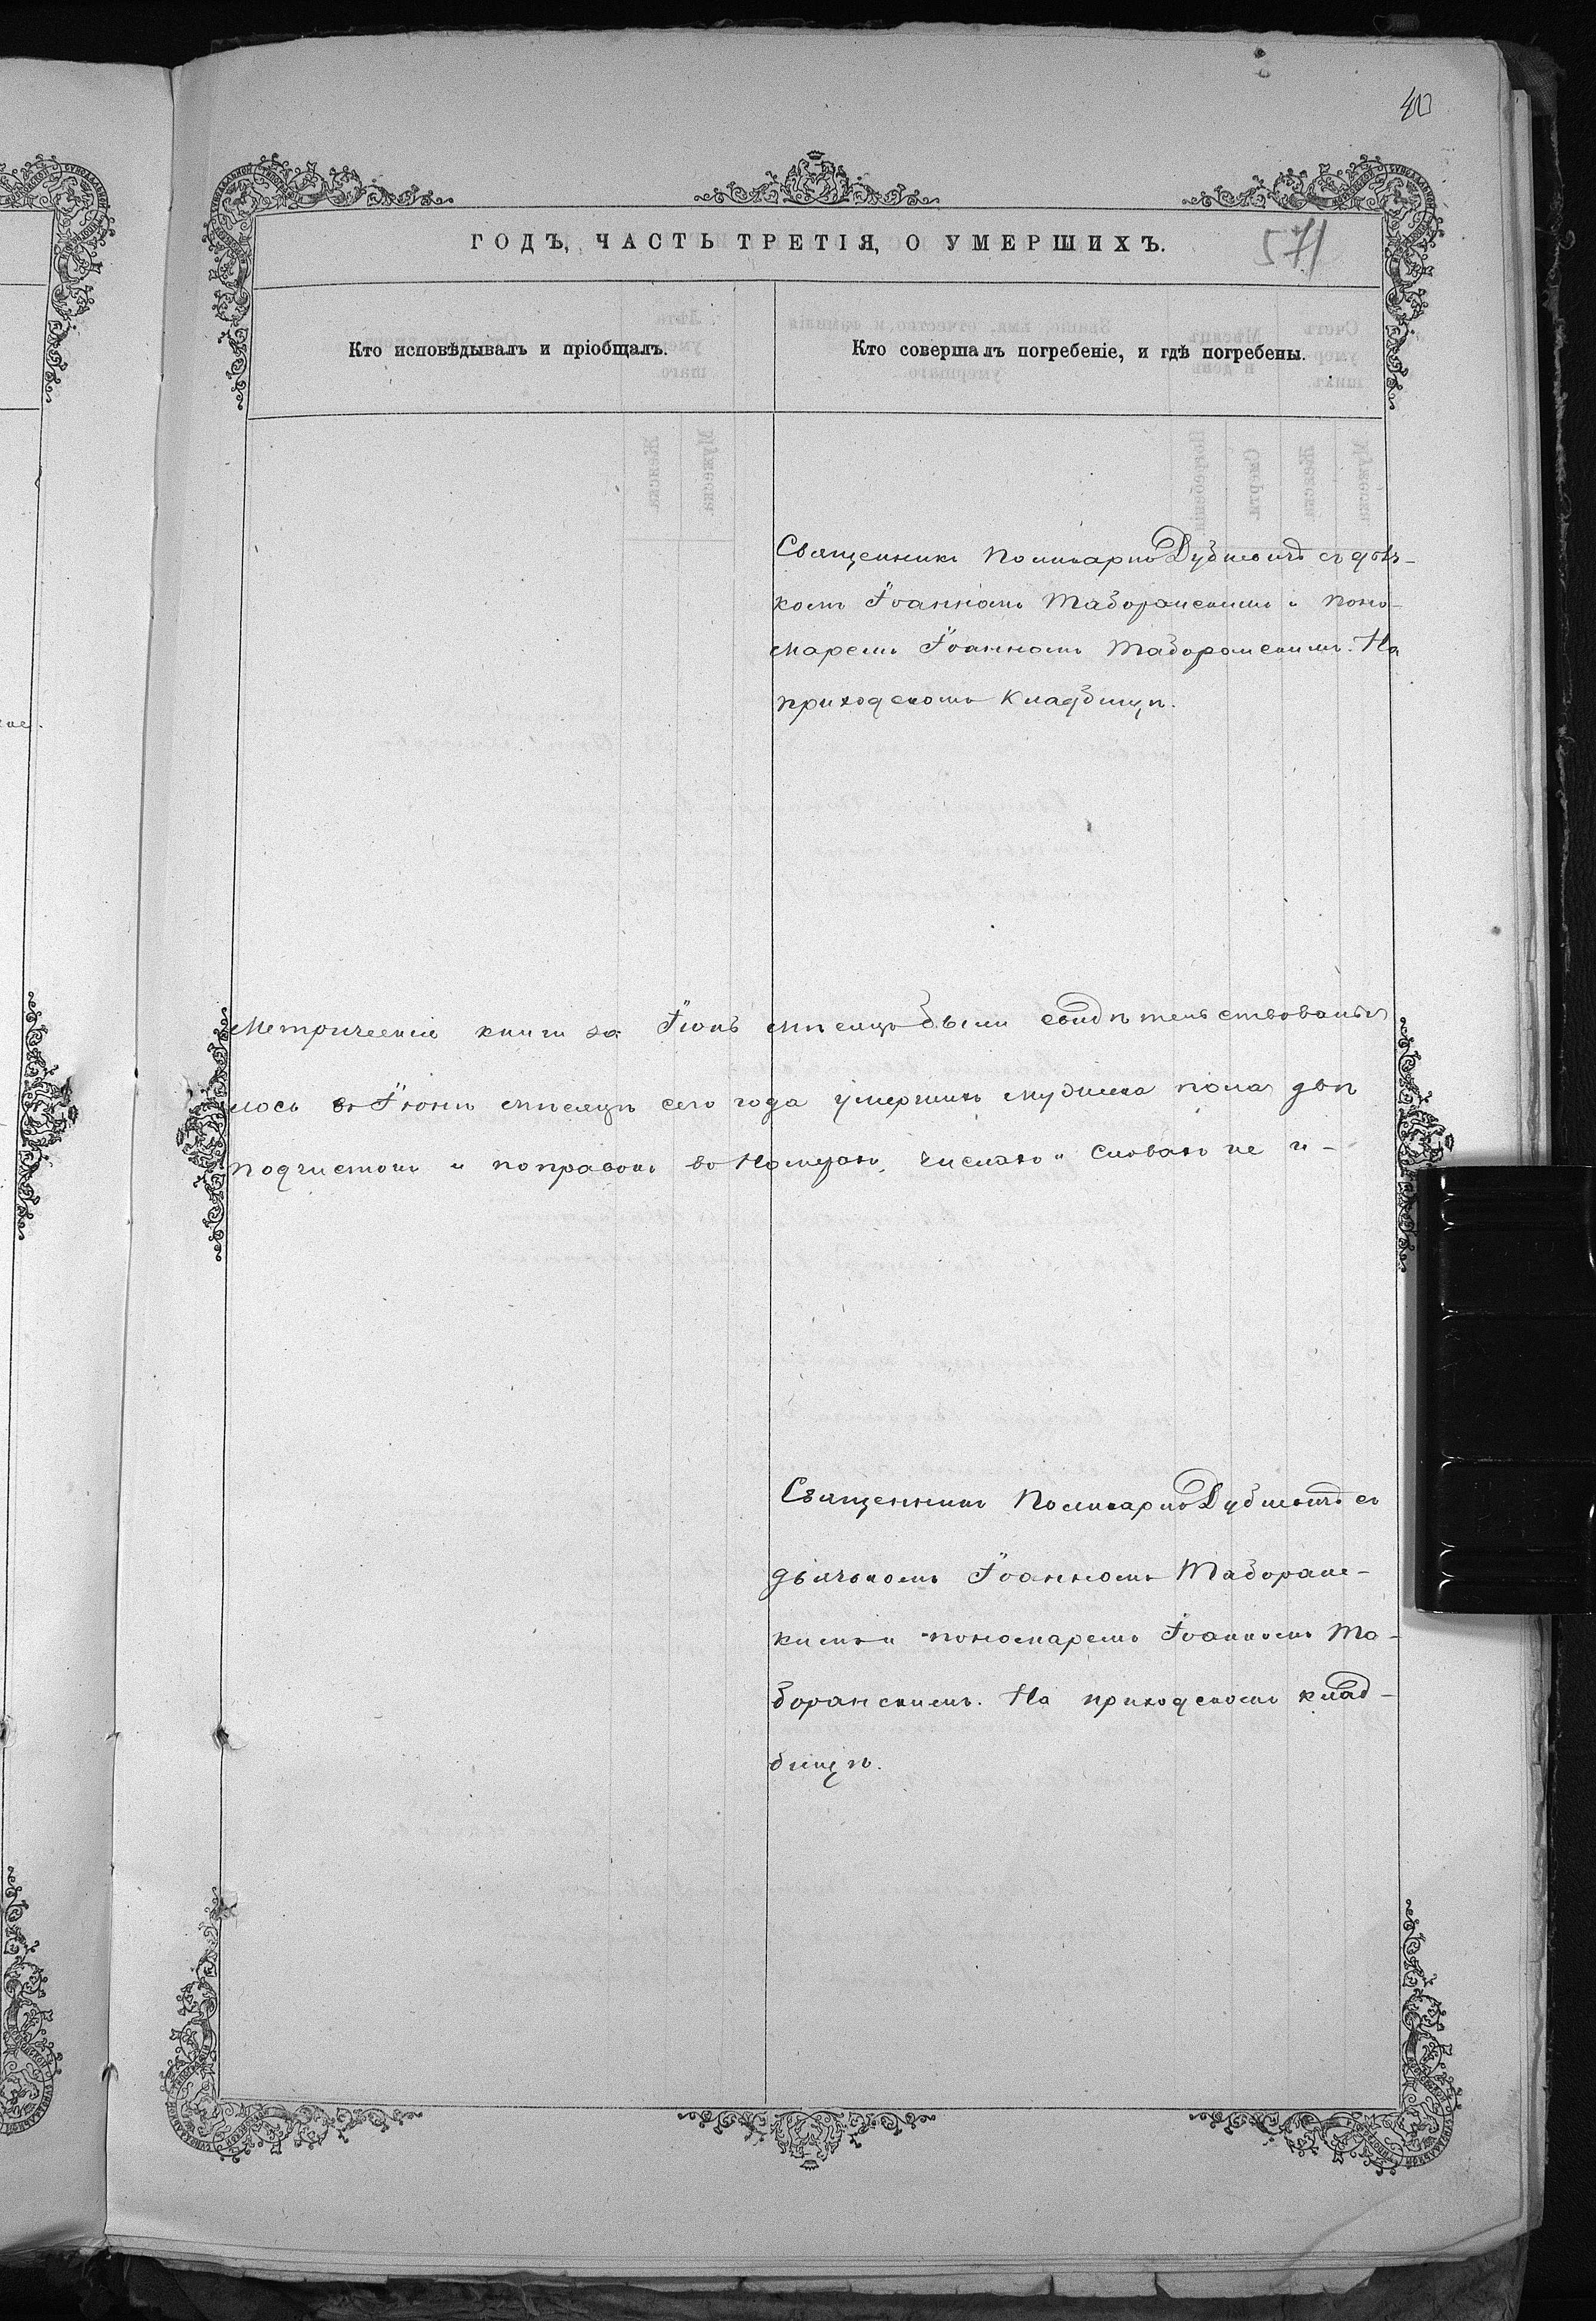 ГОДЪ, ЧАСТЬ ТРЕТІЯ, О УМЕРШИХЪ.
571
Кто исповѣдывалъ и пріобщалъ.
Кто совершалъ погребеніе, и гдѣ погребены.
Священникъ Поликарпъ Дубневичъ съ дьяч-
комъ Іоанномъ Таборанскимъ и поно-
маремъ Іоанномъ Таборанскимъ. На
приходскомъ кладбищѣ.
Метрическія книги за Іюнь мѣсяцъ были свидѣтельствованы
лось въ Іюнѣ мѣсяцѣ сего года умершихъ мужеска пола двѣ
подчистокъ и поправокъ въ номерахъ, числахъ и словахъ не и-
Священникъ Поликарпъ Дубневичъ съ
дьячкомъ Іоанномъ Таборанс-
кимъ и пономаремъ Іоанномъ Та-
боранскимъ. На приходскомъ клад-
бищѣ.